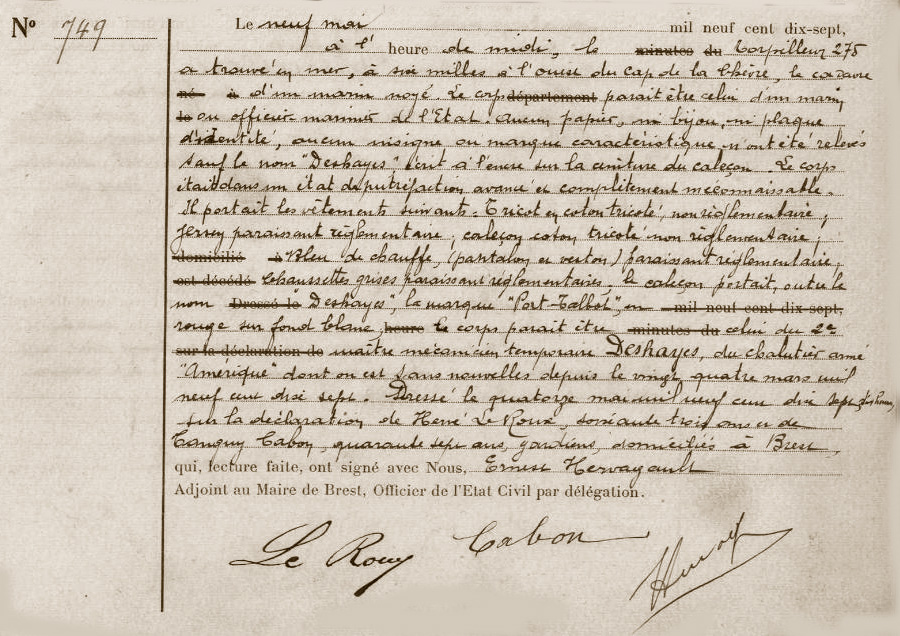 Nº 749
Le neuf mai mil neuf cent dix-sept,
à l' heure de midi, le minutes du torpilleur 275
a trouvé en mer, à six milles à l'ouest du cap de la Chèvre, le cadavre
né à d'un marin noyé. Le corps département parait être celui d'un marin
le ou officier marinier de l'Etat. Aucun papier, ni bijou, ni plaque
d'identité, aucun insigne ou marque caractéristique n'ont été relevés
sauf le nom "Deshayes" écrit à l'encre sur la ceinture du caleçon. Le corps
était dans un état de putréfaction avancé et complètement méconnaissable.
Il portait les vêtements suivants : Tricot en coton tricoté, non réglementaire ;
Jersey paraissant réglementaire ; caleçon coton tricoté non réglementaire ;
domicilié à Bleu de chauffe, (pantalon et veston) paraissant réglementaire,
est décédé Chaussettes grises paraissant réglementaires, le caleçon portait, outre le
nom Dressé le "Deshayes", la marque "Port-Talbot", en mil neuf cent dix-sept,
rouge sur fond blanc, heure le corps parait être minutes du celui du 2e
sur la déclaration de maître mécanicien temporaire Deshayes, du chalutier armé
"Amérique" dont on est sans nouvelles depuis le vingt quatre mars mil
neuf cent dix sept. Dressé le quatorze mai mil neuf cent dix sept,
sur la déclaration de Hervé Le Roux, soixante trois ans et de
Tanguy Cabon, quarante sept ans, gardiens, domiciliés à Brest,
qui, lecture faite, ont signé avec Nous, Ernest Hervagault
Adjoint au Maire de Brest, Officier de l'Etat Civil par délégation.
Le Roux Cabon